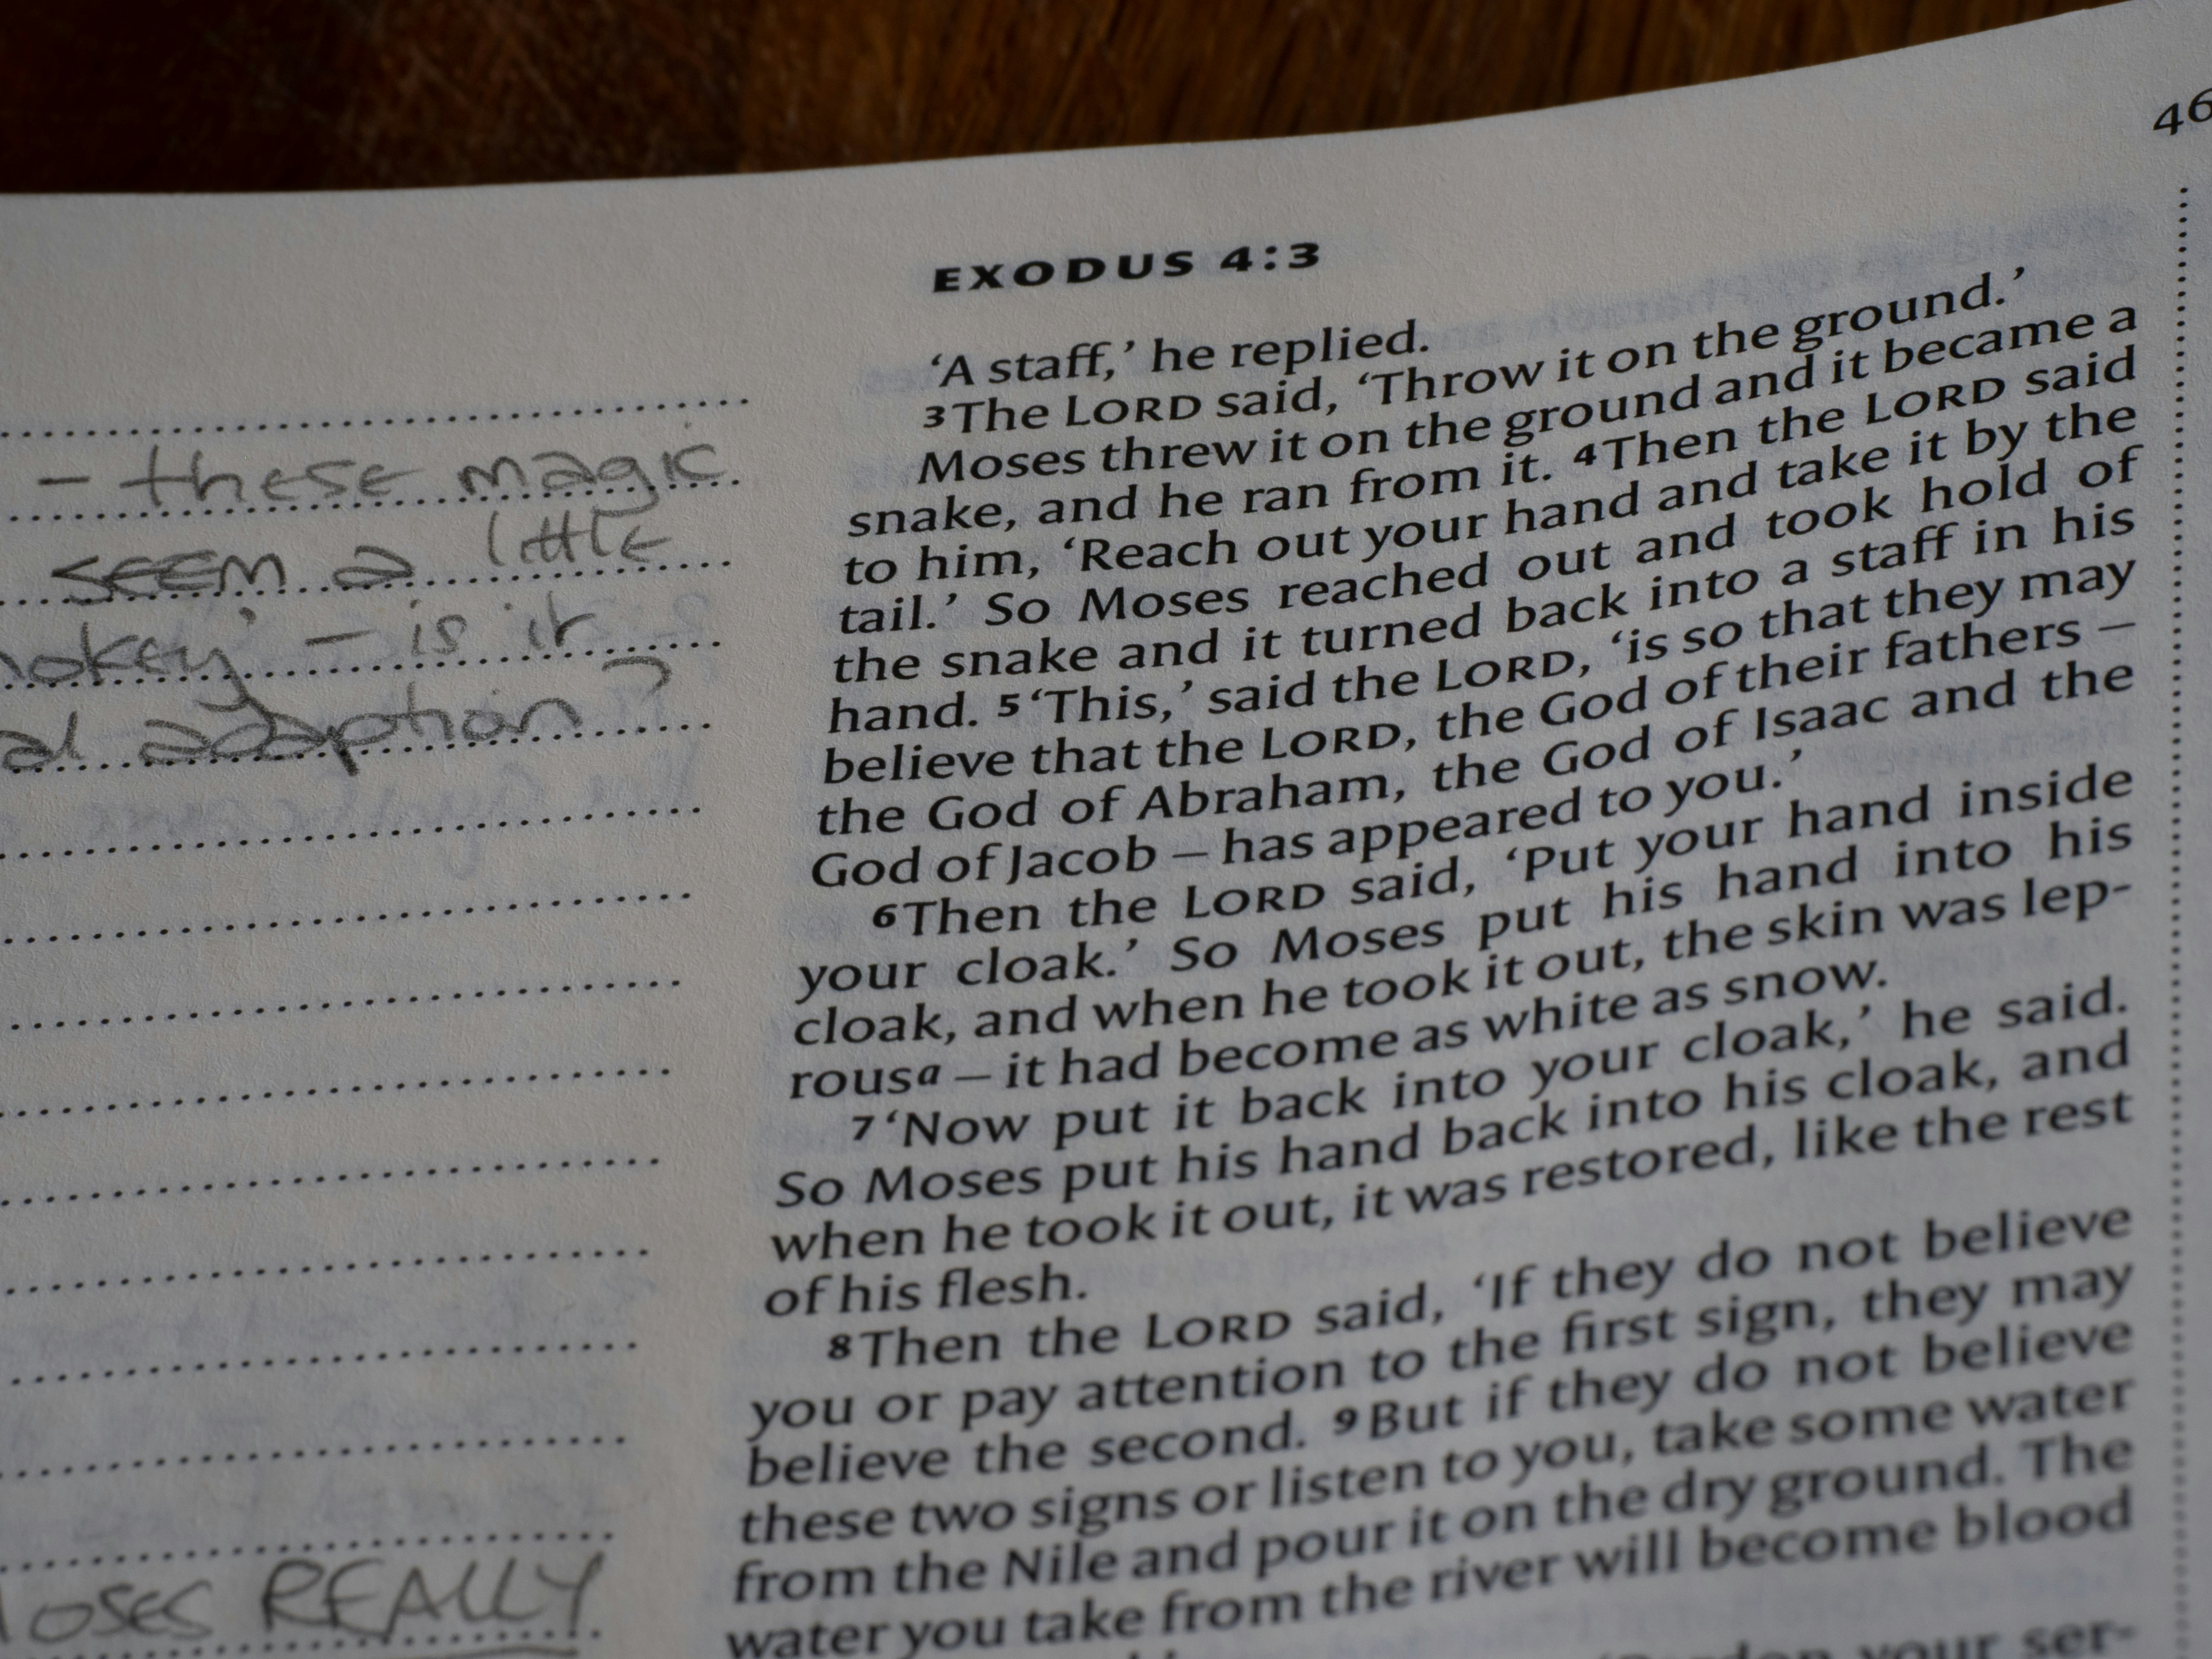 46
EXODUS 4:3
‘A staff,’ he replied.
3 The LORD said, ‘Throw it on the ground.’
Moses threw it on the ground and it became a
snake, and he ran from it. 4 Then the LORD said
to him, ‘Reach out your hand and take it by the
tail.’ So Moses reached out and took hold of
the snake and it turned back into a staff in his
hand. 5 ‘This,’ said the LORD, ‘is so that they may
believe that the LORD, the God of their fathers –
the God of Abraham, the God of Isaac and the
God of Jacob – has appeared to you.’
6 Then the LORD said, ‘Put your hand inside
your cloak.’ So Moses put his hand into his
cloak, and when he took it out, the skin was lep-
rousa – it had become as white as snow.
7 ‘Now put it back into your cloak,’ he said.
So Moses put his hand back into his cloak, and
when he took it out, it was restored, like the rest
of his flesh.
8 Then the LORD said, ‘If they do not believe
you or pay attention to the first sign, they may
believe the second. 9 But if they do not believe
these two signs or listen to you, take some water
from the Nile and pour it on the dry ground. The
water you take from the river will become blood
your ser-
– these magic
SEEM a little
hokey’ – is it
al adaption?
Moses REALLY